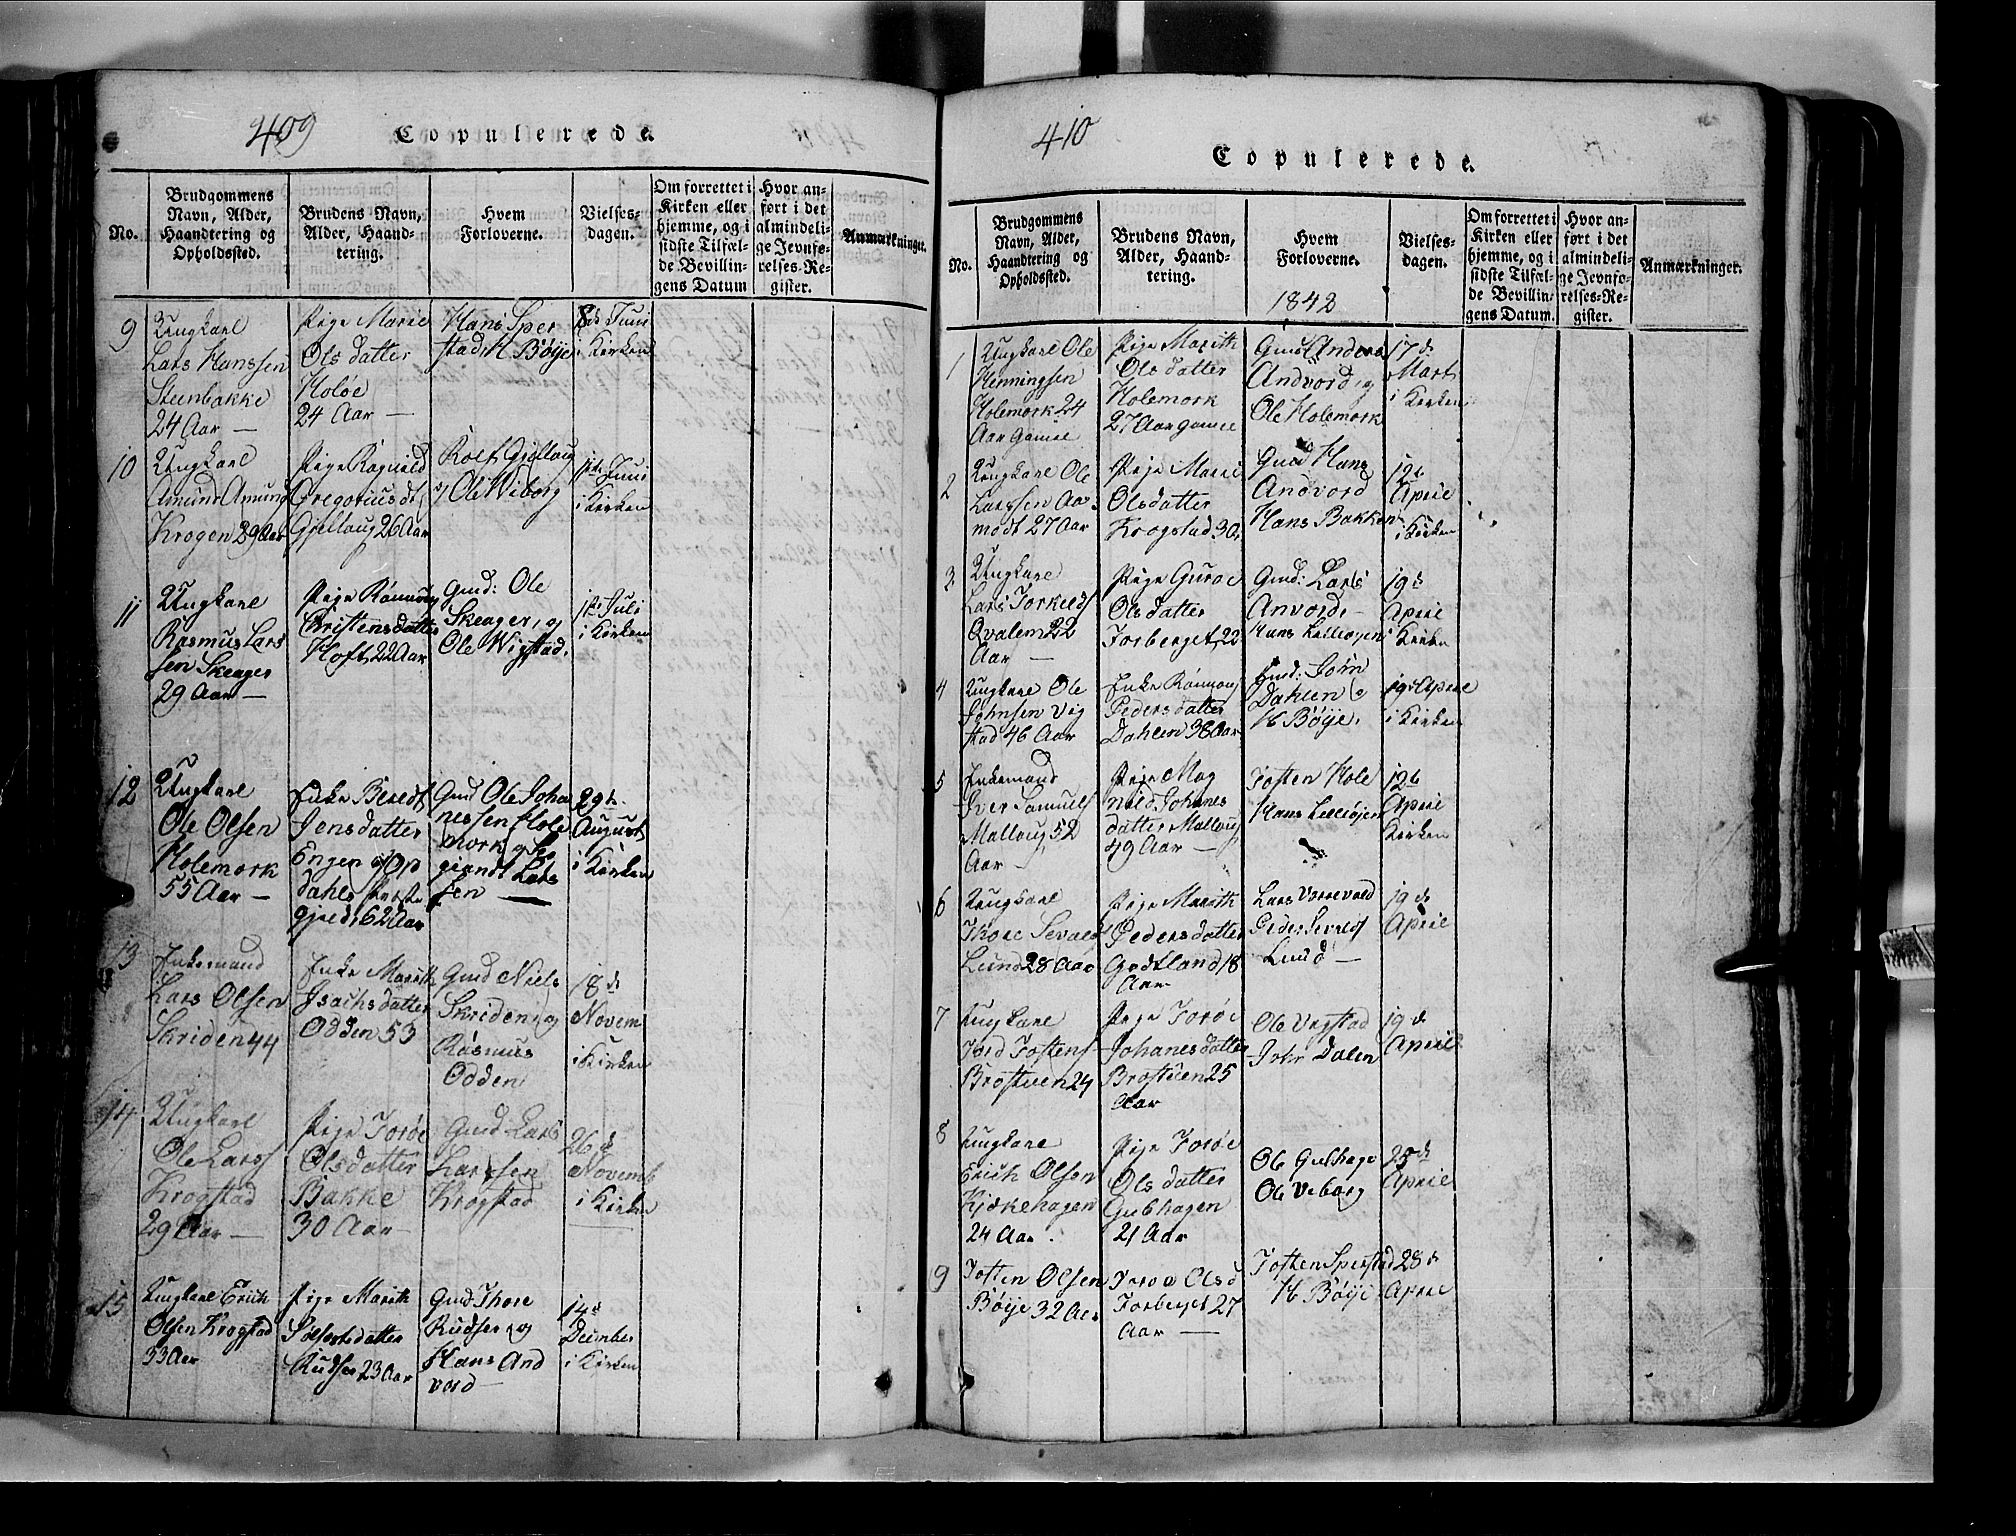 409
Copulerede.
No.
Brudgommens
Navn, Alder,
Haandtering og
Opholdssted.
Brudens Navn,
Alder, Haand-
tering.
Hvem
Forloverne.
Vielses-
dagen.
Om forrettet i
Kirken eller
hjemme, og i
sidste Tilfæl-
de Bevillin-
gens Datum
Hvor an-
ført i det
almindeli-
ge Jevnfø-
relses-Re-
gister.
Anmærkninger.
9
Ungkarl
Lars Hanssen
Steenbakke
24 Aar —
Pige Marie
Olsdatter
Holøe
24 Aar —
Hans Sper
stad, H Bøije
8de Juni
i Kirken
10
Ungkarl
Amund Amunds
Krogen 29 Aar
Pige Ragnild
Gregoriusdt
Gjellaug 26 Aar
Rolf Gjellaug
og Ole Wiborg
Juni
i Kirken
11
Ungkarl
Rasmus Lars
sen Skeager
29 Aar —
Pige Rannoug
Christensdatter
Hoft 22 Aar
Gmd: Ole
Skeager, og
Ole Wigstad.
Juli
i Kirken
12
Ungkarl
Ole Olsen
Holemork
55 Aar —
Enke Beredt
Jensdatter
Engen og Op
dahls
62 Aar
Gmd Ole Joha
nessen Hole
mork og
Lars
sen —
29de
August
i Kirken
13
Enkemand
Lars Olsen
Skriden 44
Enke Marith
Isachsdatter
Odden 53
Gmd Niels
Skriden, og
Rasmus
Odden
18de
Novem
i Kirken
14
Ungkarl
Ole Larss
Krogstad
29 Aar —
Pige Toroe
Olsdatter
Bakke
30 Aar —
Gmd Lars
Larssen
Krogstad
26de
Novemb
i Kirken
15
Ungkarl Erich
Olsen Krogstad
53 Aar
Pige Marith
Sølfestsdatter
Rudser 23 Aar
Gmd Thore
Rudser og
Hans And
vord —
14de
Deimber
i Kirken
410
Copulerede.
No.
Brudgommens
Navn, Alder,
Haandtering og
Opholdssted.
Brudens Navn,
Alder, Haand-
tering.
Hvem
Forloverne.
1842
Vielses-
dagen.
Om forrettet i
Kirken eller
hjemme, og i
sidste Tilfæl-
de Bevillin-
gens Datum.
Hvor an-
ført i det
almindeli-
ge Jevnfø-
relses-Re-
gister.
Anmærkninger.
1
Ungkarl Ole
Henningsen
Holemork 24
Aar Gamel
Pige Marith
Olsdatter
Holemork
27 Aar gamel
Gmd Anders
Andvord og
Ole Holemork
17de
Marts
i Kirken
2
Ungkarl Ole
Larssen Aa-
modt 27 Aar
Pige Marie
Olsdatter
Krogstad 30
Gmd Hans
Andvord
Hans Bakken
12te
Aprel
i Kirken
3
Ungkarl
Lars Torkelds
Qvalem 22
Aar —
Pige Guroe
Olsdatter
Torberget 22
Gmd: Lars
Anvord —
Hans Lilleøjen
19de
Aprel
Kirken
4
Ungkarl Ole
Johnsen Vig
stad 46 Aar
Enke Rannoug
Pedersdatter
Dahlen 36 Aar
Gmd: John
Dahlen og
H Bøije.
19de Aprel
i Kirken
5
Enkemand
Iver Samuels
Mallaug 52
Aar —
Pige Mag
nild Johanes
datter Mallaug
49 Aar —
Josten Hole
Hans Lilleøjen
12te
Aprel
Kirken
6
Ungkarl
Thore Sevalds
Lund 28 Aar
Pige Marith
Pedersdatter
Gradtland 18
Aar
Lars
Peder Sevalds
Lund —
19de
Aprel
7
Ungkarl
Tord Jostens
Brostuen 24
Pige Toroe
Johanesdatter
Brostuen 25
Aar
Ole Vigstad
John Dalen
19de
Aprel
8
Ungkarl
Erich Olsen
Kjøkehagen
24 Aar.
Pige Toroe
Olsdatter
Gubhagen
21 Aar
Ole Gubhage
Ole Viborg
25de
Aprel
9
Josten Olsen
Bøije 32 Aar
Toroe Olsd
Torberget 27
Aar —
Josten Sperstad
H Bøije
28de
Aprel